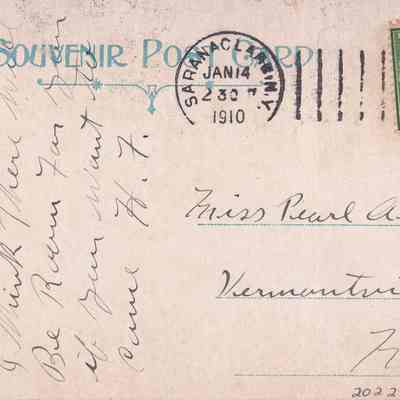 SOUVENIR POST CARD
SARANAC LAKE N.Y.
JAN 14
2 30 P
1910
I think There
Be Room For You
if You want to
come H. F.
Miss Pearl A
Vermontvi
N
2022